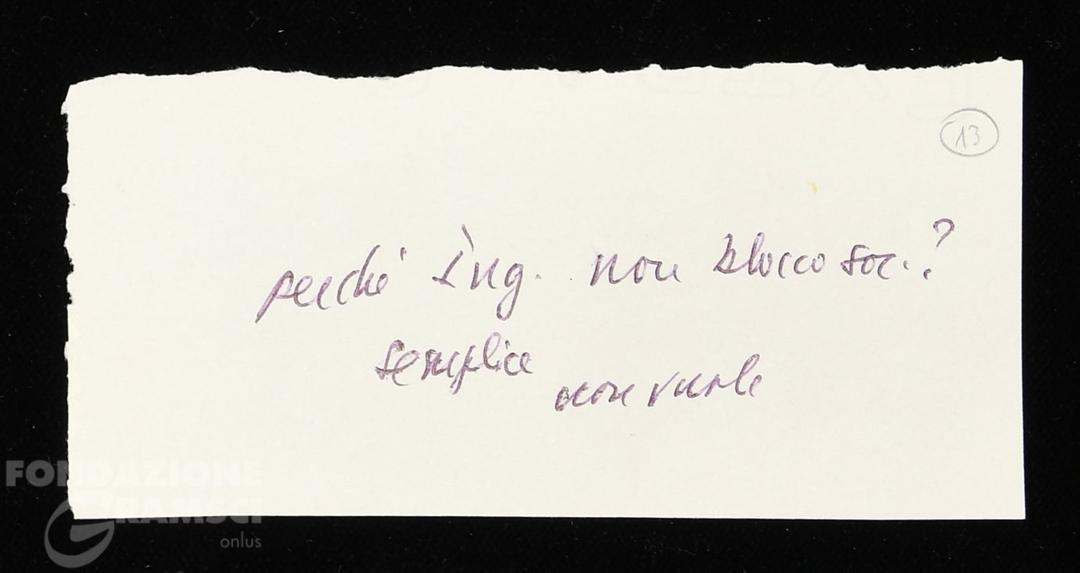 13
perché Ing. non blocco soc.?
semplice
non vuole
FONDAZIONE
GRAMSCI
onlus